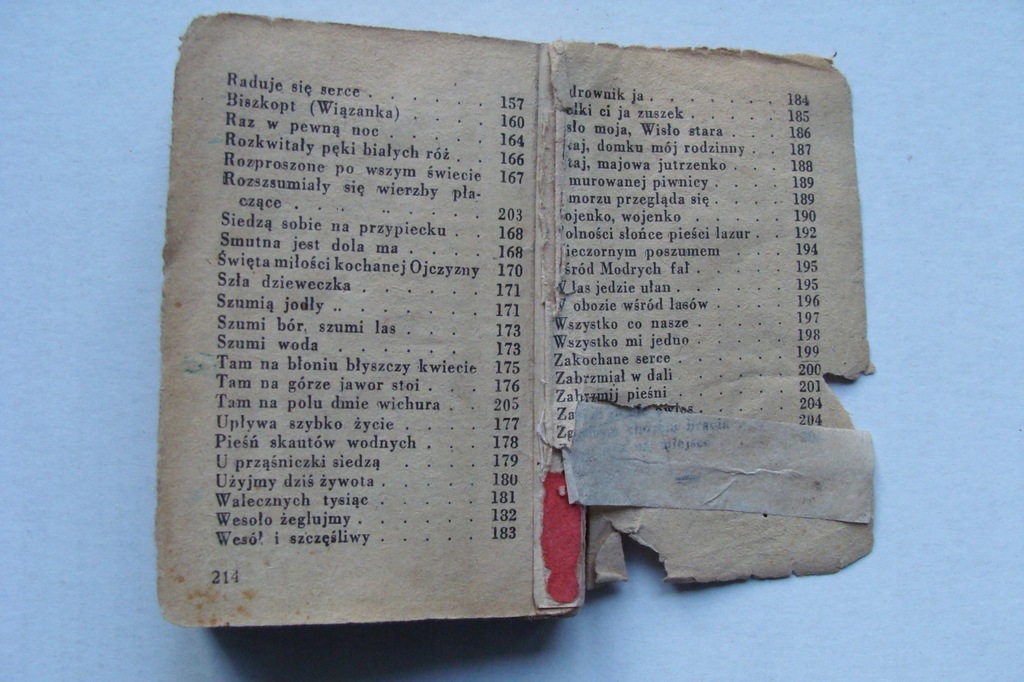 Raduje się serce . . . . . . 157
Biszkopt (Wiązanka) . . . . 160
Raz w pewną noc . . . . . 164
Rozkwitały pęki białych róż . . 166
Rozproszone po wszym świecie 167
Rozszsumiały się wierzby pła-
czące . . . . . . . 203
Siedzą sobie na przypiecku . . 168
Smutna jest dola ma . . . . 168
Święta miłości kochanej Ojczyzny 170
Szła dzieweczka . . . . . . 171
Szumią jodły . . . . . . . 171
Szumi bór, szumi las . . . . 173
Szumi woda . . . . . . . 173
Tam na błoniu błyszczy kwiecie 175
Tam na górze jawor stoi . . . 176
Tam na polu dmie wichura . . 205
Upływa szybko życie . . . . 177
Pieśń skautów wodnych . . . 178
U prząśniczki siedzą . . . . 179
Użyjmy dziś żywota . . . . . 180
Walecznych tysiąc . . . . . 181
Wesoło żeglujmy . . . . . . 182
Wesół i szczęśliwy . . . . . 183
214
drownik ja . . . . . . . 184
elki ci ja zuszek . . . . . 185
sło moja, Wisło stara . . . 186
taj, domku mój rodzinny . . 187
taj, majowa jutrzenko . . . 188
murowanej piwnicy . . . . 189
morzu przegląda się . . . . 189
ojenko, wojenko . . . . . 190
olności słońce pieści lazur . . 192
ieczornym poszumem . . . 194
śród Modrych fal . . . . . 195
W las jedzie ułan . . . . . 195
W obozie wśród lasów . . . . 196
Wszystko co nasze . . . . . 197
Wszystko mi jedno . . . . . 198
Zakochane serce . . . . . . 199
Zabrzmiał w dali . . . . . 200
Zabrzmij pieśni . . . . . . 201
Za 204
Zg 204